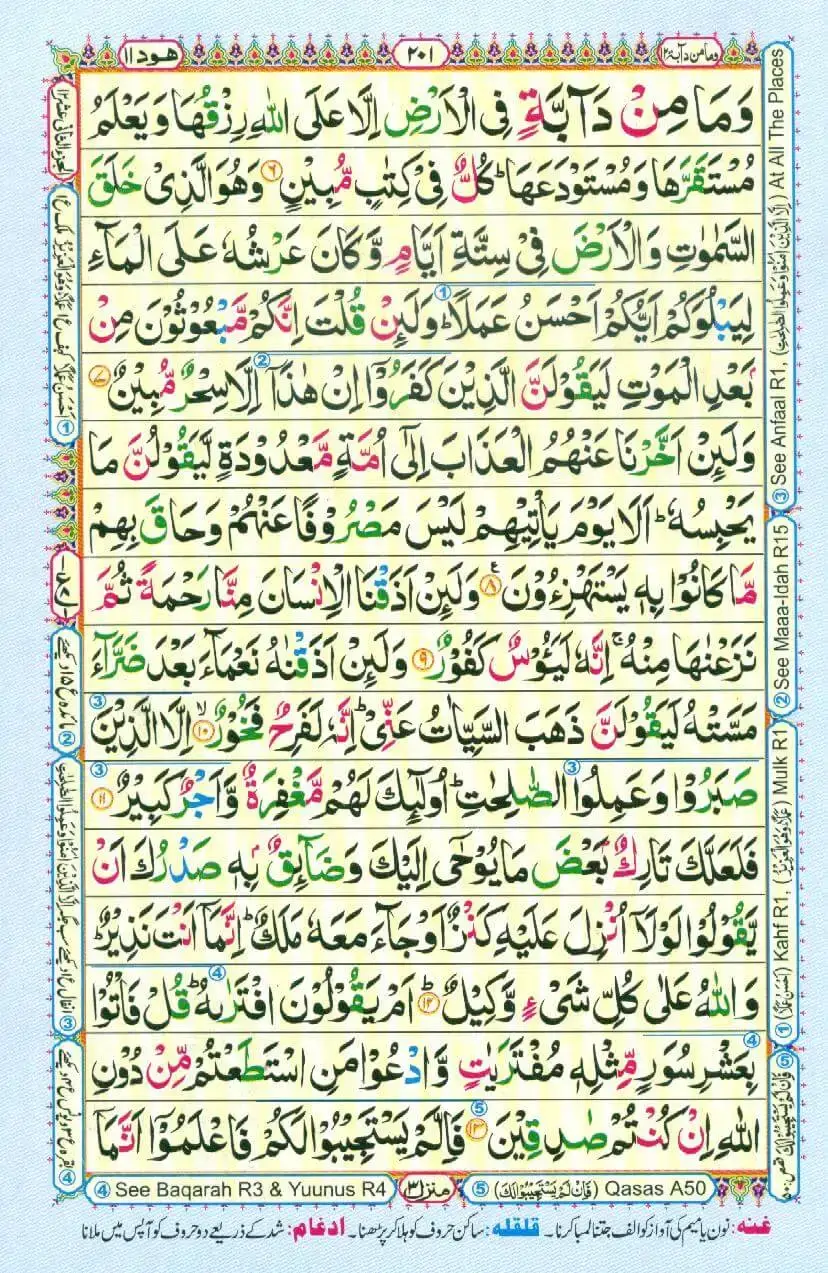 ومامن دآبة ١٢
٢٠١
هود ١١
وَمَا مِنْ دَآبَّةٍ فِی الْاَرْضِ اِلَّا عَلَی اللّٰهِ رِزْقُهَا وَیَعْلَمُ
مُسْتَقَرَّهَا وَمُسْتَوْدَعَهَا ؕ كُلٌّ فِیْ كِتٰبٍ مُّبِیْنٍ ۶ وَهُوَ الَّذِیْ خَلَقَ
السَّمٰوٰتِ وَالْاَرْضَ فِیْ سِتَّةِ اَیَّامٍ وَّكَانَ عَرْشُهٗ عَلَی الْمَآءِ
لِیَبْلُوَكُمْ اَیُّكُمْ اَحْسَنُ عَمَلًا ؕ وَلَئِنْ قُلْتَ اِنَّكُمْ مَّبْعُوْثُوْنَ مِنْۢ
بَعْدِ الْمَوْتِ لَیَقُوْلَنَّ الَّذِیْنَ كَفَرُوْۤا اِنْ هٰذَاۤ اِلَّا سِحْرٌ مُّبِیْنٌ ۷
وَلَئِنْ اَخَّرْنَا عَنْهُمُ الْعَذَابَ اِلٰۤی اُمَّةٍ مَّعْدُوْدَةٍ لَّیَقُوْلُنَّ مَا
یَحْبِسُهٗ ؕ اَلَا یَوْمَ یَاْتِیْهِمْ لَیْسَ مَصْرُوْفًا عَنْهُمْ وَحَاقَ بِهِمْ
مَّا كَانُوْا بِهٖ یَسْتَهْزِءُوْنَ ۸ وَلَئِنْ اَذَقْنَا الْاِنْسَانَ مِنَّا رَحْمَةً ثُمَّ
نَزَعْنٰهَا مِنْهُ ۚ اِنَّهٗ لَیَـُٔوْسٌ كَفُوْرٌ ۹ وَلَئِنْ اَذَقْنٰهُ نَعْمَآءَ بَعْدَ ضَرَّآءَ
مَسَّتْهُ لَیَقُوْلَنَّ ذَهَبَ السَّیِّاٰتُ عَنِّیْ ؕ اِنَّهٗ لَفَرِحٌ فَخُوْرٌ ۱۰ اِلَّا الَّذِیْنَ
صَبَرُوْا وَعَمِلُوا الصّٰلِحٰتِ ؕ اُولٰٓئِكَ لَهُمْ مَّغْفِرَةٌ وَّاَجْرٌ كَبِیْرٌ ۱۱
فَلَعَلَّكَ تَارِكٌۢ بَعْضَ مَا یُوْحٰۤی اِلَیْكَ وَضَآئِقٌۢ بِهٖ صَدْرُكَ اَنْ
یَّقُوْلُوْا لَوْلَاۤ اُنْزِلَ عَلَیْهِ كَنْزٌ اَوْ جَآءَ مَعَهٗ مَلَكٌ ؕ اِنَّمَاۤ اَنْتَ نَذِیْرٌ ؕ
وَاللّٰهُ عَلٰی كُلِّ شَیْءٍ وَّكِیْلٌ ۱۲ اَمْ یَقُوْلُوْنَ افْتَرٰىهُ ؕ قُلْ فَاْتُوْا
بِعَشْرِ سُوَرٍ مِّثْلِهٖ مُفْتَرَیٰتٍ وَّادْعُوْا مَنِ اسْتَطَعْتُمْ مِّنْ دُوْنِ
اللّٰهِ اِنْ كُنْتُمْ صٰدِقِیْنَ ۱۳ فَاِلَّمْ یَسْتَجِیْبُوْا لَكُمْ فَاعْلَمُوْۤا اَنَّمَاۤ
③ See Anfaal R1, (اِلَّا الَّذِیْنَ اٰمَنُوْا وَعَمِلُوا الصّٰلِحٰتِ) At All The Places
② See Maaa-Idah R15
① (اَحْسَنُ عَمَلًا) Kahf R1, (عَمَلًا وَهُوَ الْعَزِیْزُ) Mulk R1
④ See Baqarah R3 & Yuunus R4
منزل ٣
⑤ (فَاِنْ لَّمْ یَسْتَجِیْبُوْا لَكَ) Qasas A50
غنه: نون یا میم کی آواز کو الف جتنا لمبا کرنا۔ قلقله: ساکن حروف کو ہلا کر پڑھنا۔ ادغام: شد کے ذریعے دو حروف کو آپس میں ملانا